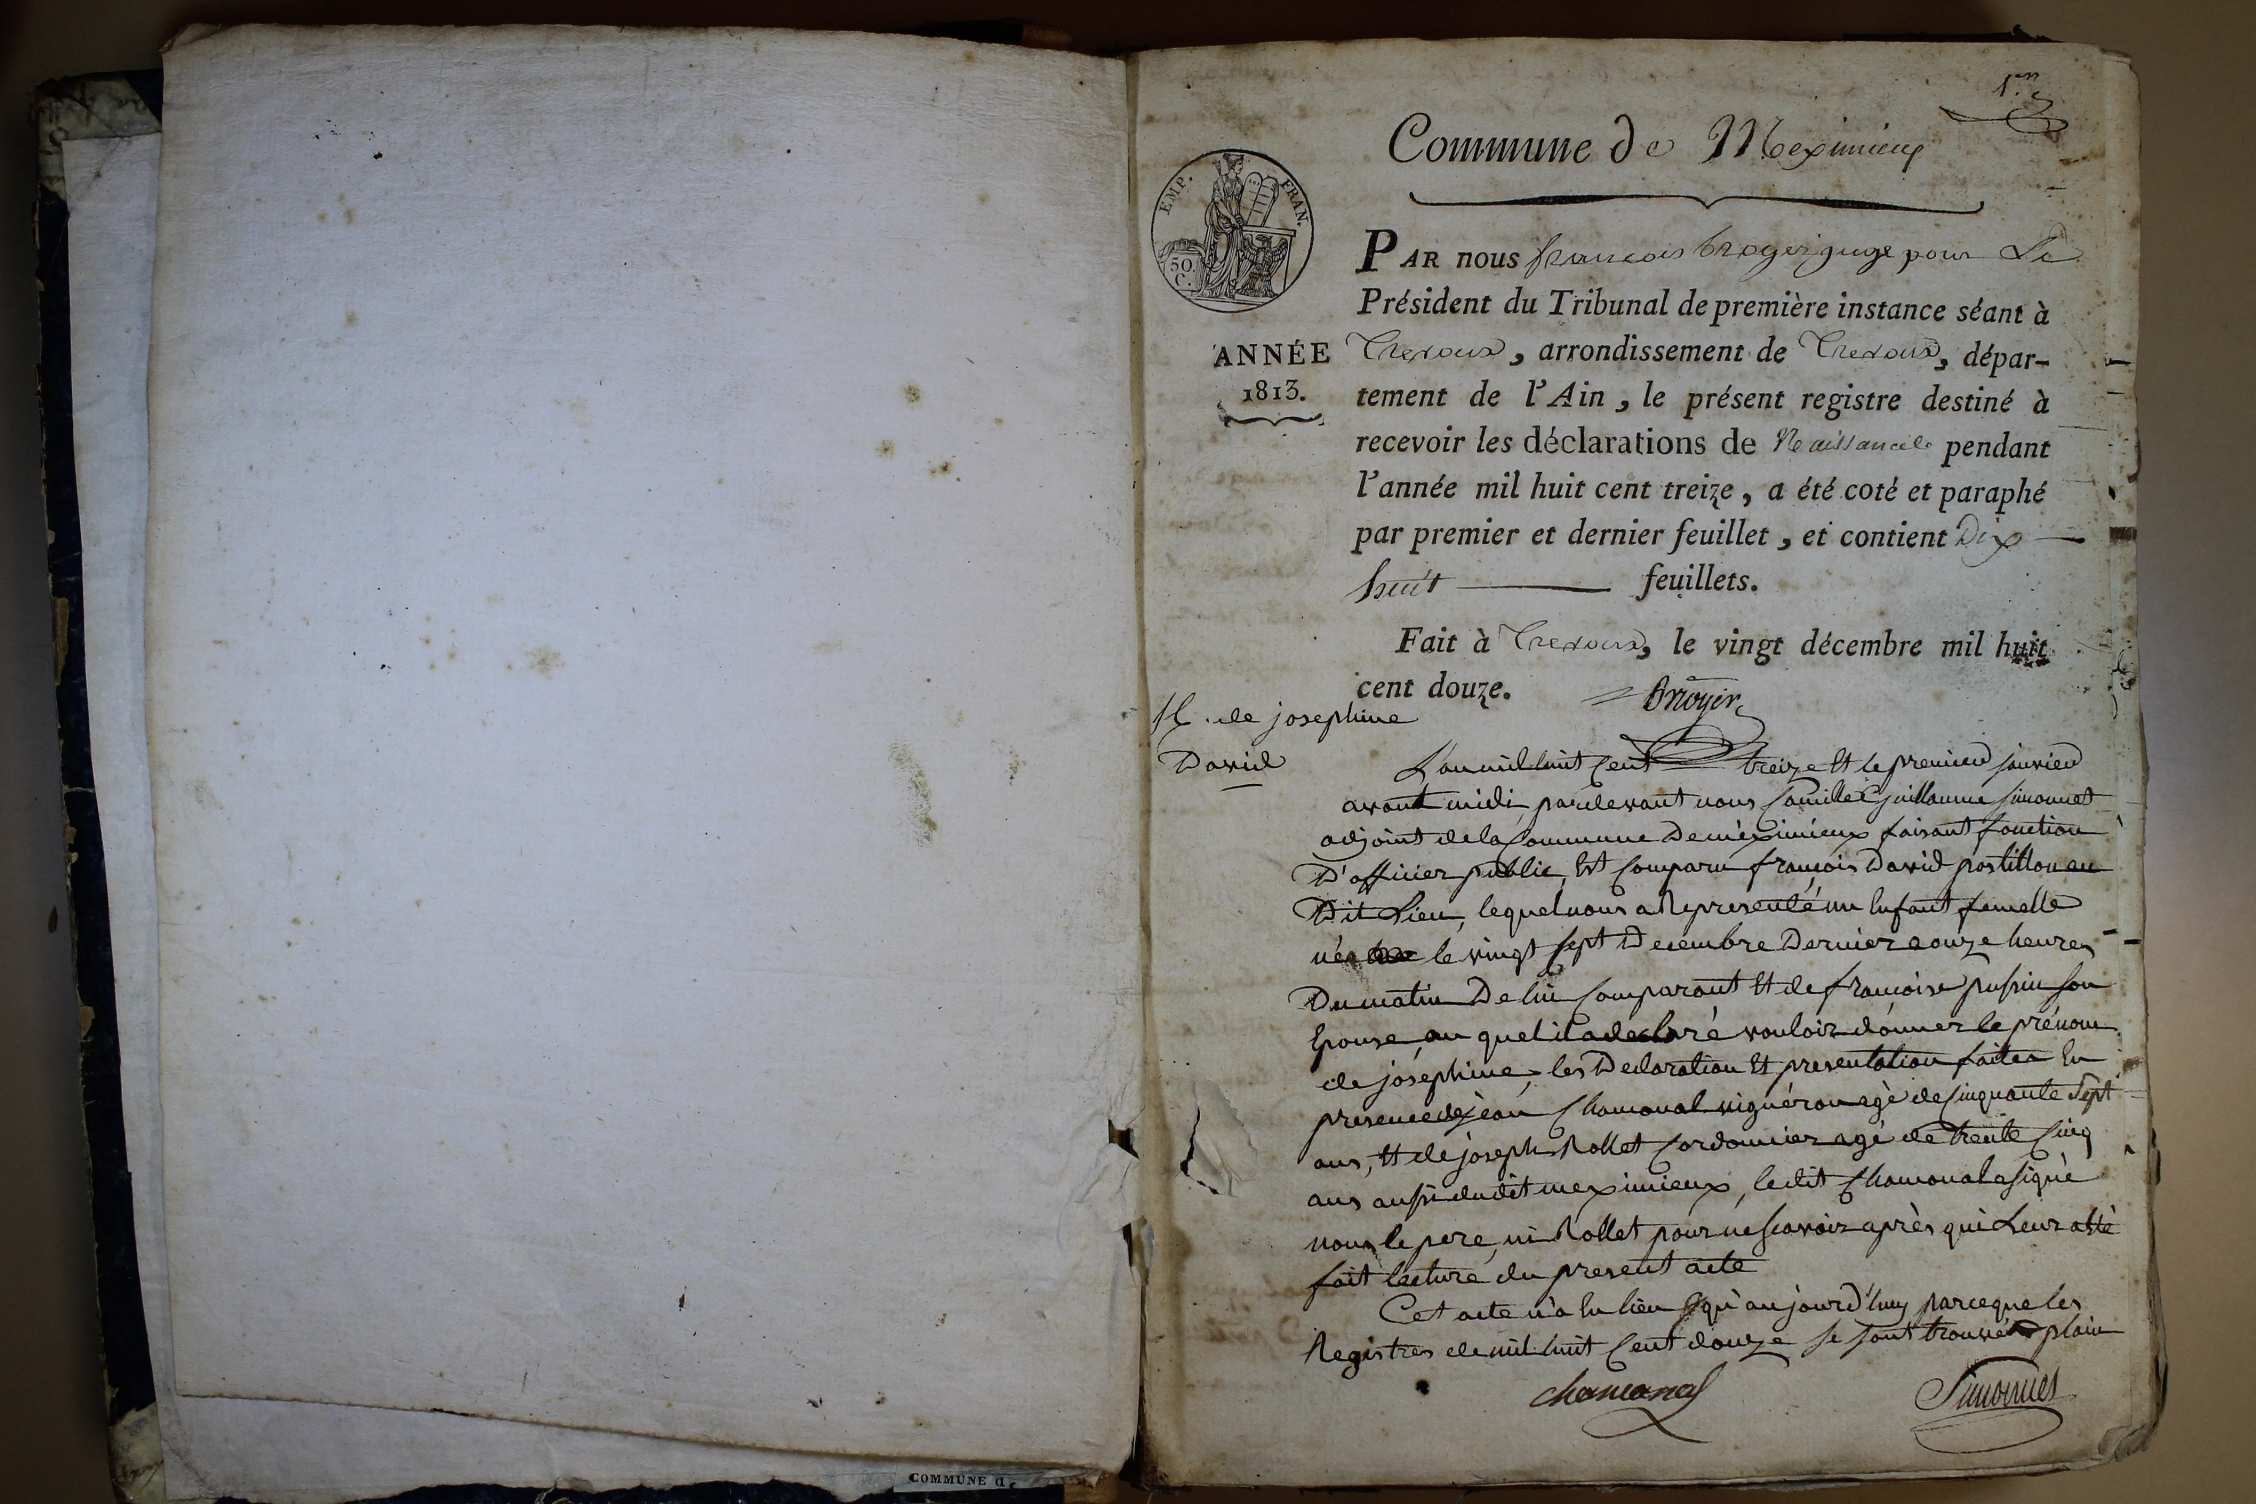 1.er
Commune de Meximieux
EMP. FRAN.
50.
C.
PAR nous françois broyer juge pour Le
Président du Tribunal de première instance séant à
ANNÉE
1813.
Trevoux, arrondissement de Trevoux, dépar-
tement de l'Ain, le présent registre destiné à
recevoir les déclarations de Naissance pendant
l'année mil huit cent treize, a été coté et paraphé
par premier et dernier feuillet, et contient Dix
huit feuillets.
Fait à Trevoux, le vingt décembre mil huit
cent douze. Broyer
N. de josephine
David
L'an mil huit Cent treize Et le premier janvier
avant midi, pardevant nous Camille Guillaume Simonnet
adjoint de la Commune De méximieux faisant fonction
D'officier public, Est Comparu françois David postillon au
Dit Lieu, lequel nous a Representé un Enfant femelle
née le vingt Sept Decembre Dernier a onze heures
Du matin De lui Comparant Et de françoise pussin Son
Epouse, au quel il a declaré vouloir donner le prénom
de joséphine, les Declaration Et presentation faites En
presence de jean Chamonal vignéron agé de Cinquante Sept
ans, Et de joseph Rollet Cordonnier agé de trente Cinq
ans aussi dudit meximieux, le dit Chamonal a signé
non le pere, ni Rollet pour ne scavoir après qui Leur a été
fait lecture du present acte
Cet acte n'a Eu lieu qu'aujourd'huy parceque les
Registres de mil huit Cent douze se sont trouvés plein
chamonal Simonnet
COMMUNE de